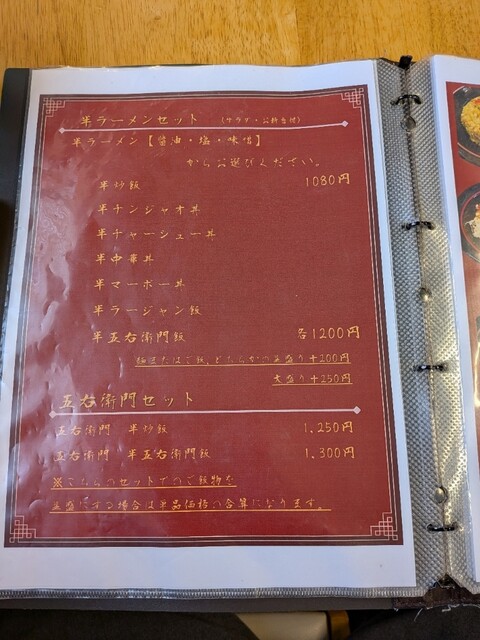 半ラーメンセット (サラダ・お新香付)
半ラーメン【醤油・塩・味噌】
からお選びください。
半炒飯 1080円
半チンジャオ丼
半チャーシュー丼
半中華丼
半マーボー丼
半ラージャン飯
半五右衛門飯 各1200円
麺またはご飯、どちらかの並盛り+200円
大盛り+250円
五右衛門セット
五右衛門 半炒飯 1,250円
五右衛門 半五右衛門飯 1,300円
※こちらのセットでのご飯物を
並盛にする場合は単品価格の合算になります。